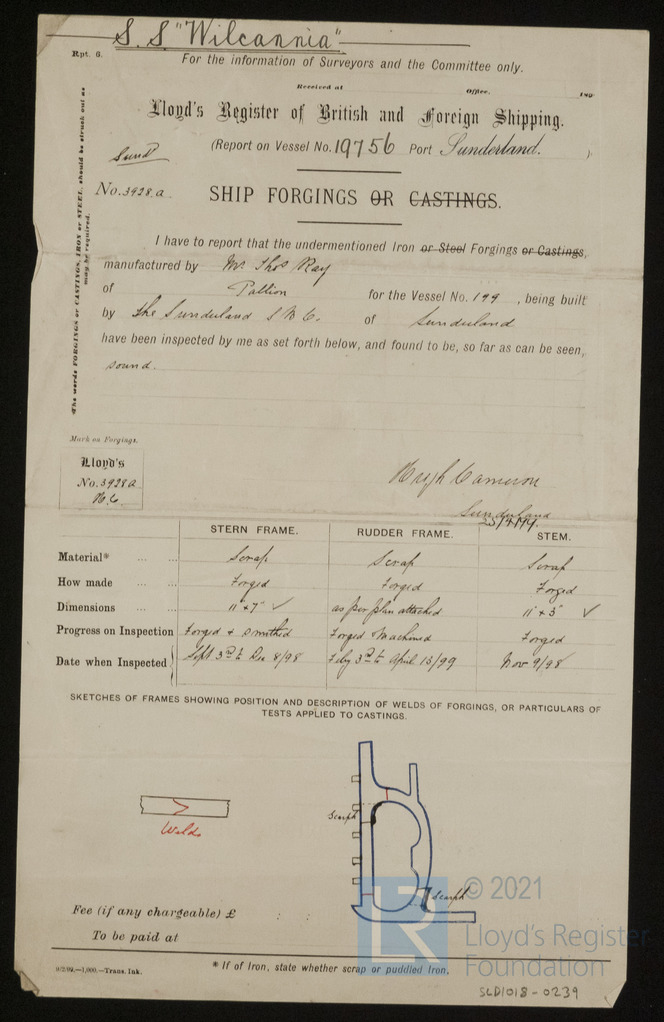 S. S "Wilcannia"
Rpt. 6.
For the information of Surveyors and the Committee only.
Received at Office, 189
Lloyd's Register of British and Foreign Shipping.
(Report on Vessel No. 19756 Port Sunderland. )
Sund
No. 3928.a
SHIP FORGINGS OR CASTINGS.
The words FORGINGS or CASTINGS, IRON or STEEL, should be struck out as
may be required.
I have to report that the undermentioned Iron or Steel Forgings or Castings,
manufactured by Mr. Thos Ray
of Pallion for the Vessel No. 199 , being built
by The Sunderland S B C. of Sunderland
have been inspected by me as set forth below, and found to be, so far as can be seen,
sound.
Mark on Forgings.
Lloyd's
No. 3928a
H.C.
Hugh Cameron
Sunderland
STERN FRAME. RUDDER FRAME. STEM.
Material* ... ... Scrap Scrap Scrap
How made ... Forged Forged Forged
Dimensions ... ... 11" x 7" ✓ as per plan attached 11" x 3" ✓
Progress on Inspection Forged & smithed Forged Machined Forged
Date when Inspected Sept 3rd to Dec 8/98 Feby 3rd to April 13/99 Nov 9/98
SKETCHES OF FRAMES SHOWING POSITION AND DESCRIPTION OF WELDS OF FORGINGS, OR PARTICULARS OF
TESTS APPLIED TO CASTINGS.
Scarph
Welds
Scarph
Fee (if any chargeable) £ : :
To be paid at
* If of Iron, state whether scrap or puddled Iron.
9/2/99.—1,000.—Trans. Ink.
© 2021
LR
Lloyd's Register
Foundation
SLD1018-0239